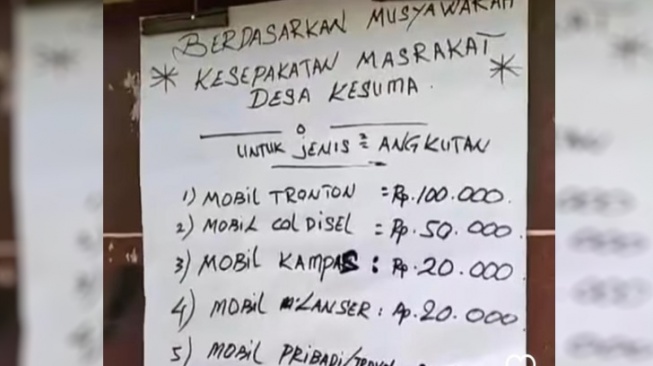 BERDASARKAN MUSYAWARAH
* KESEPAKATAN MASRAKAT *
DESA KESUMA.
UNTUK JENIS² ANGKUTAN
1) MOBIL TRONTON = Rp. 100.000.
2) MOBIL COL DISEL = Rp. 50.000.
3) MOBIL KAMPAS : Rp. 20.000
4) MOBIL LANSER : Rp. 20.000
5) MOBIL PRIBADI/